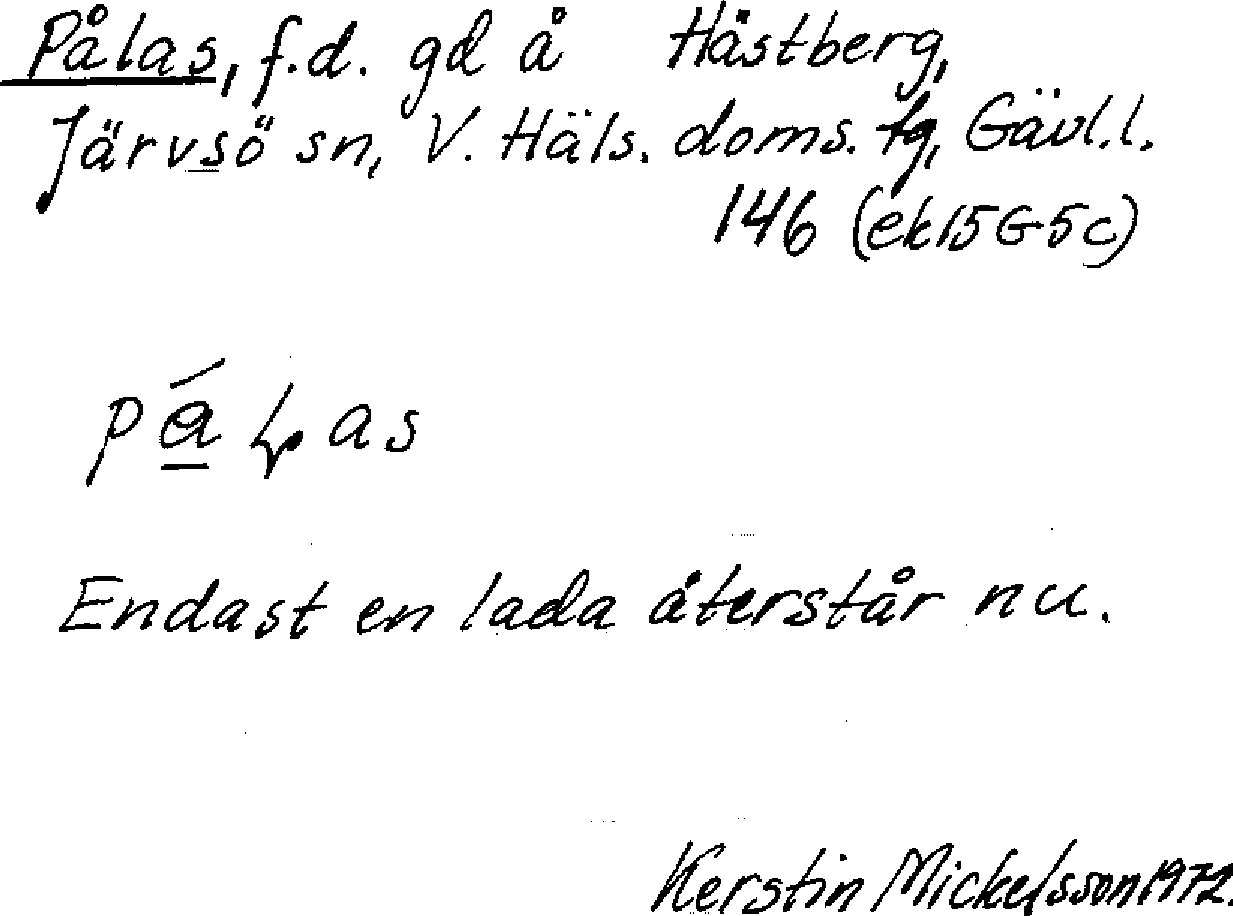 Pålas, f.d. gd å Hästberg,
Järvsö sn, V. Häls. doms. tg, Gävl.l.
146 (ek15G5c)
as
Endast en lada återstår nu.
Kerstin Mickelsson 1972.